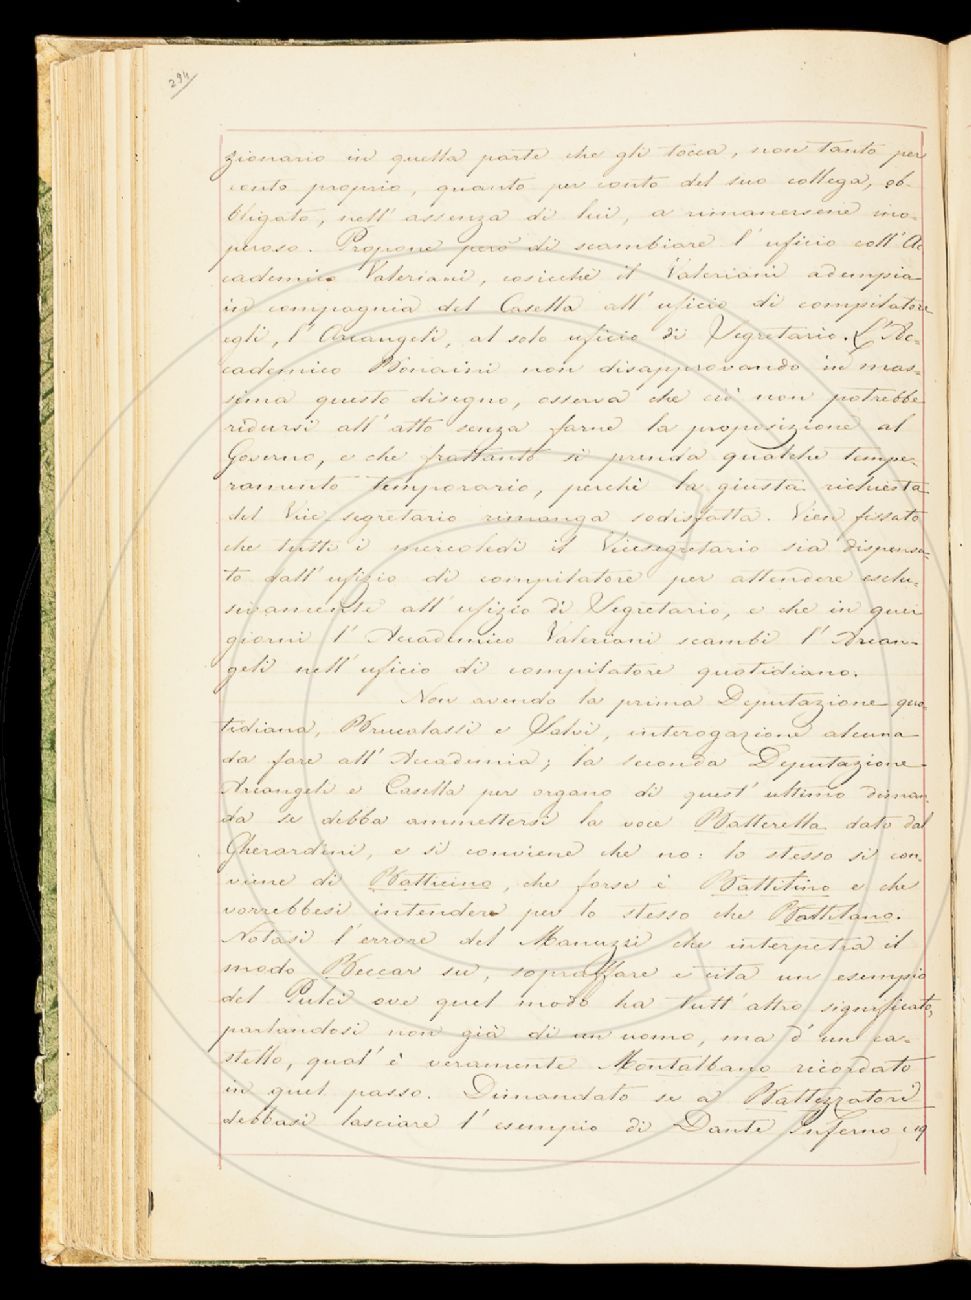 294
zionario in quella parte che gli tocca, non tanto per
conto proprio, quanto per conto del suo collega, ob-
bligato, nell' assenza di lui, a rimanersene ino-
peroso. Propone però di scambiare l' uficio coll' Ac
cademico Valeriani, cosicchè il Valeriani adempia
in compagnia del Casella all' uficio di compilatore
egli, l' Arcangeli, al solo uficio di Segretario. L' Ac-
cademico Bonaini non disapprovando in mas-
sima questo disegno, osserva che ciò non potrebbe
ridursi all' atto senza farne la proposizione al
Governo, e che frattanto si prenda qualche tempe-
ramento temporario, perchè la giusta richiesta
del Vice-segretario rimanga sodisfatta. Vien fissato
che tutti i mercoledì il Vicesegretario sia dispensa-
to dall' ufizio di compilatore per attendere esclu-
sivamente all' ufizio di Segretario, e che in quei
giorni l' Accademico Valeriani scambi l' Arcan-
geli nell' uficio di compilatore quotidiano.
Non avendo la prima Deputazione quo-
tidiana, Brucalassi e Salvi, interogazione alcuna
da fare all' Accademia; la seconda Deputazione
Arcangeli e Casella per organo di quest' ultimo diman-
da se debba ammettersi la voce Batterella dato dal
Gherardini, e si conviene che no: lo stesso si con-
viene di Batticino, che forse è Battilino e che
vorrebbesi intendere per lo stesso che Battilano.
Notasi l' errore del Manuzzi che interpetra il
modo Beccar su, sopraffare e cita un esempio
del Pulci ove quel modo ha tutt' altro significato,
parlandosi non già di un uomo, ma d' un ca-
stello, qual' è veramente Montalbano ricordato
in quel passo. Dimandato se a Battezzatori
debbasi lasciare l' esempio di Dante Inferno 19